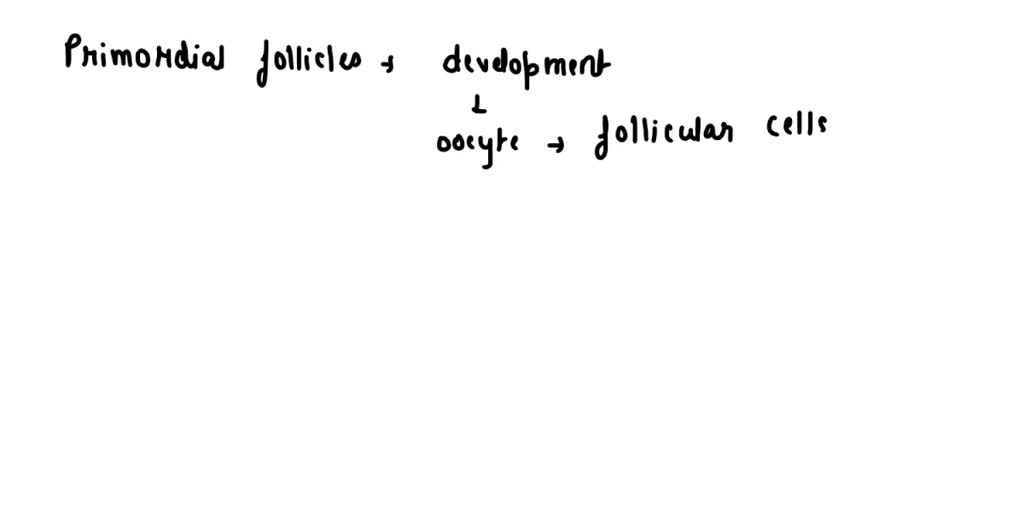 Primordial follicles → development
↓
oocyte → follicular cells